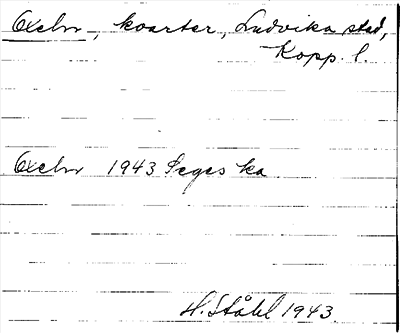 Oxeln, kvarter, Ludvika stad,
Kopp. l.
Oxeln 1943 Seges ka
H. Ståhl 1943